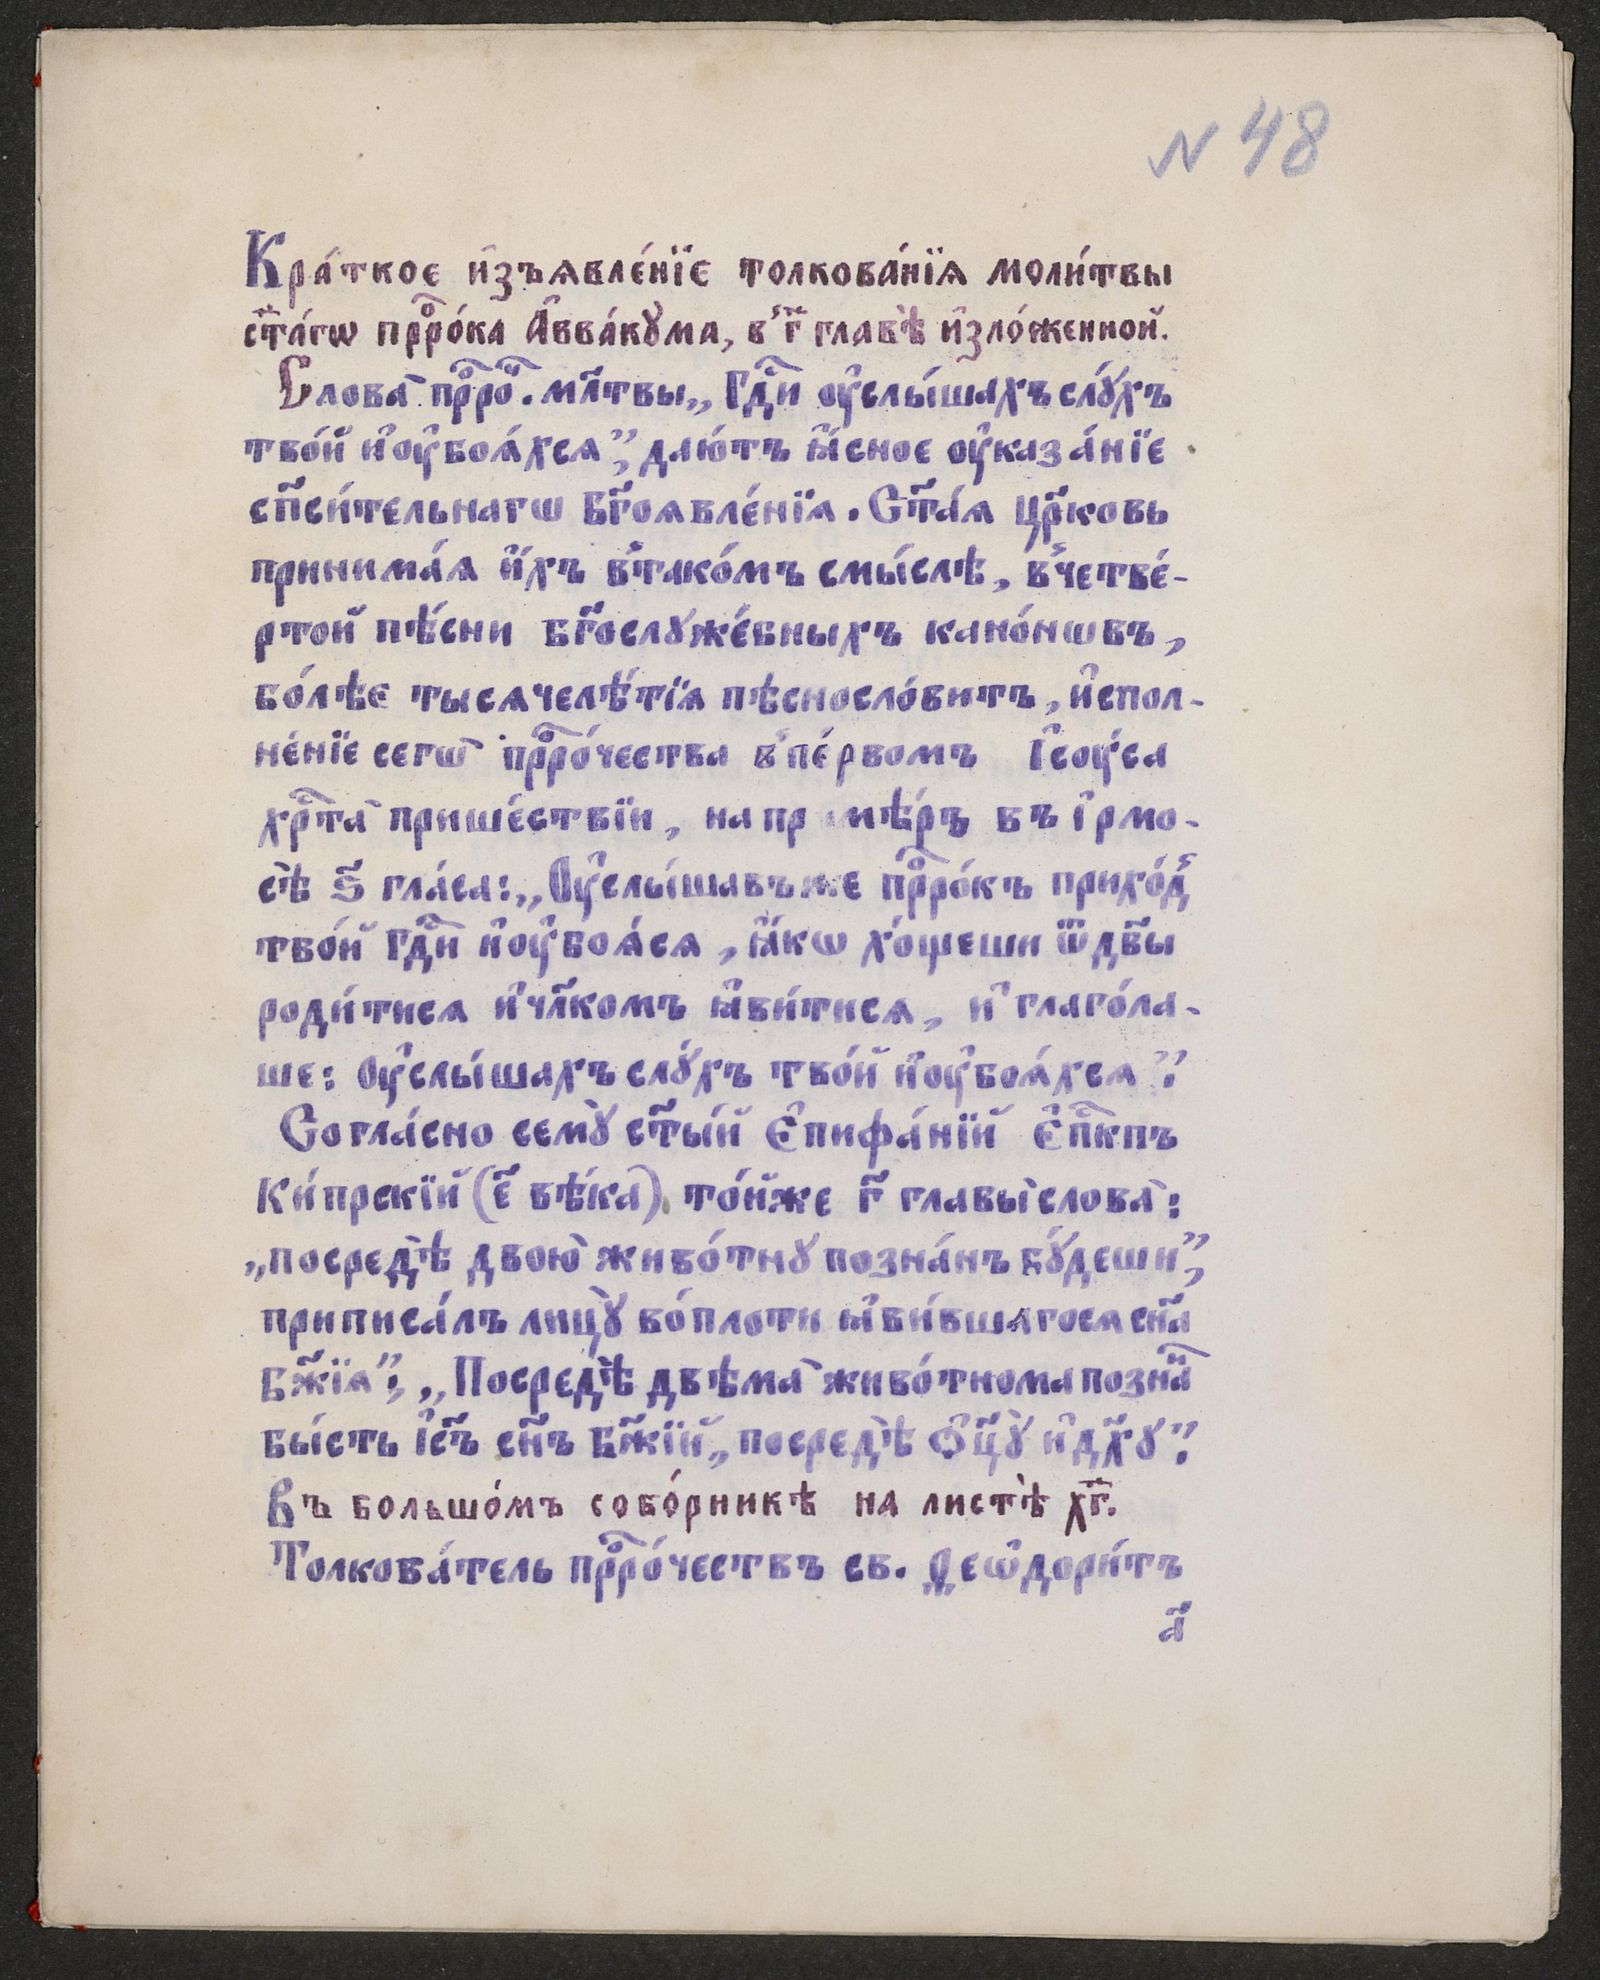 N 48
Кра́ткое и҆зъѧвле́нїе толкова́нїѧ моли́твы
ст҃а́гѡ прⷪ҇ро́ка А҆ввакꙋ́ма, в̾ г҃ главѣ̀ и҆зло́женной.
Слова̀ прⷪ҇ро̑. мл҃твы „Гдⷭ҇и ᲂу҆слы́шахъ слꙋ́хъ
тво́й и҆ ᲂу҆боѧ́хсѧ”, даю́тъ ꙗ҆́сное ᲂу҆каза́нїе
сп҃си́тельнагѡ бг҃оѧвле́нїѧ. Ст҃а́ѧ цр҃ковь
принима́ѧ и҆́хъ в̾тако́мъ смы́слѣ, в̾четве́-
ртой пѣ́сни бг҃ослꙋже́бныхъ кано́нѡвъ,
бо́лѣе тысѧчелѣ́тїѧ пѣсносло́витъ, и҆спол-
не́нїе сегѡ̀ прⷪ҇ро́чества в̾ пе́рвомъ І҆сᲂу́са
хрⷭ҇та̀ прише́ствїи, на примѣ́ръ въ і҆рмо-
сѣ̀ ѕ҃ гла́са: „Оу҆слы́шавъ же прⷪ҇ро́къ прихо́д̾
тво́й Гдⷭ҇и и҆ ᲂу҆боѧ́сѧ, ꙗ҆́кѡ хо́щеши ѿ дв҃ы
роди́тисѧ и҆ чл҃комъ ꙗ҆ви́тисѧ, и҆ глаго́ла-
ше: Оу҆слы́шахъ слꙋ́хъ тво́й и҆ ᲂу҆боѧ́хсѧ”.
Согла́сно семꙋ̀ ст҃ы́й Є҆пифа́нїй Є҆пⷭ҇кпъ
Ки́прскїй (є҃ вѣ́ка) то́йже г҃ главы̀ слова̀:
„посредѣ̀ двою̀ живо́тнꙋ позна́нъ бꙋ́деши”,
приписа́лъ лицꙋ̀ во́плоти ꙗ҆ви́вшагосѧ сн҃а
бж҃їѧ”; „Посредѣ̀ двѣма̀ живо́тнома позна̀
бы́сть І҆с҃ъ сн҃ъ Бж҃їй „посредѣ̀ Ѻ҆ц҃ꙋ̀ и҆ дх҃ꙋ”.
Въ большо́мъ собо́рникѣ на листѣ̀ хг҃.
Толкова́тель прⷪ҇ро́чествъ св. Ѳеѡ҆дори́тъ
а҃